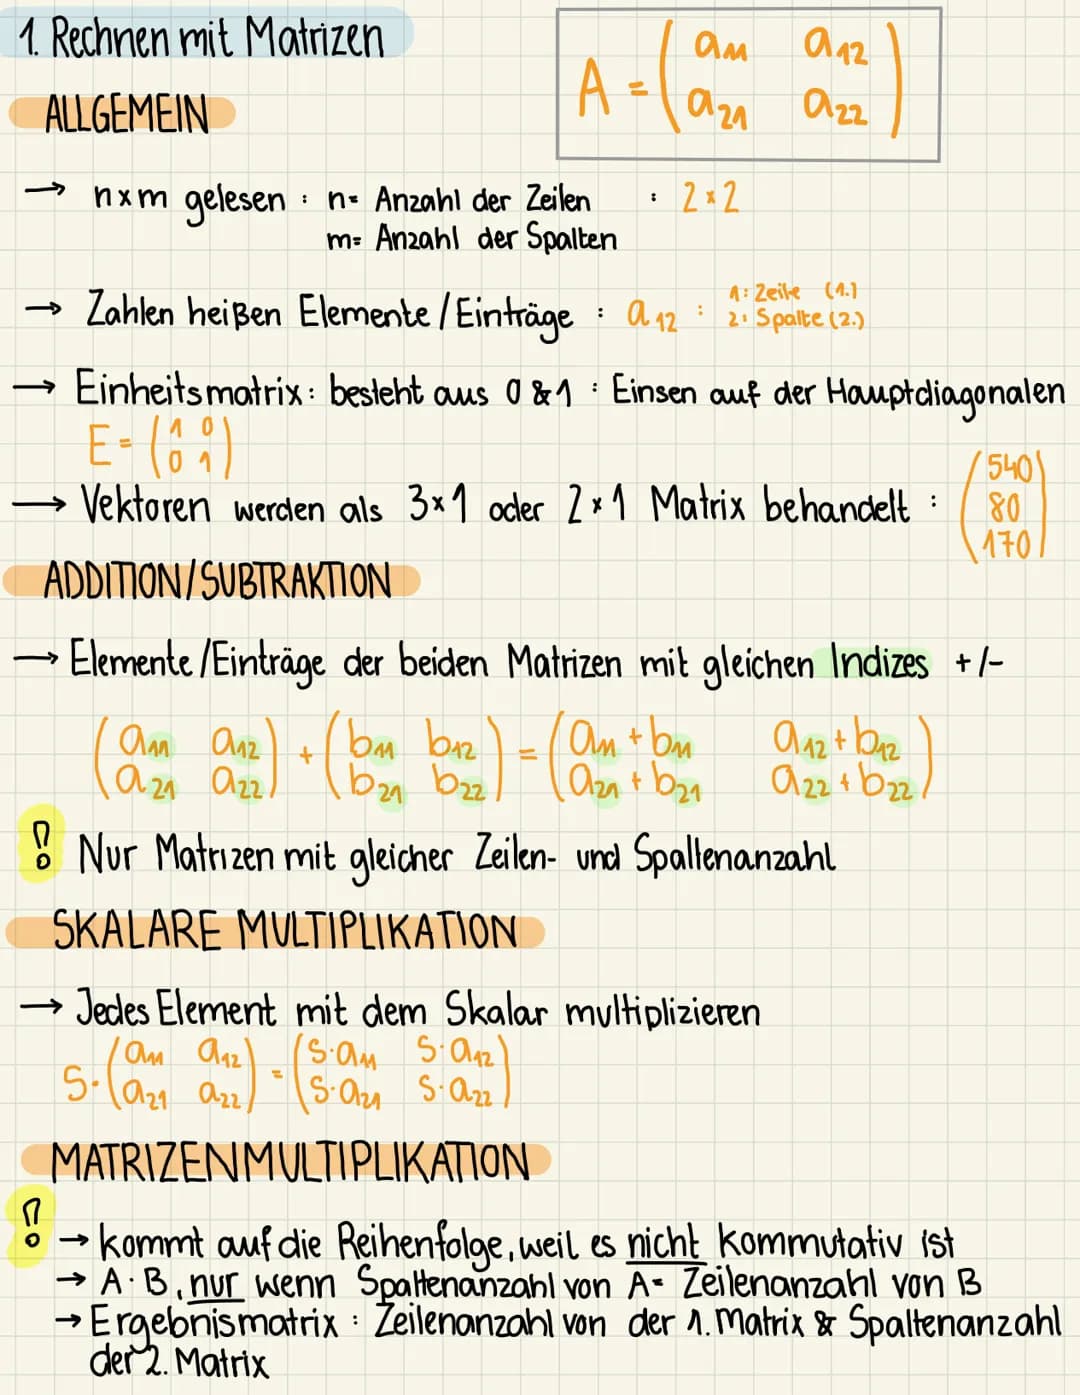 1. Rechnen mit Matrizen
A = ( a11 a12
a21 a22 )
ALLGEMEIN
→ n×m gelesen : n= Anzahl der Zeilen : 2×2
m= Anzahl der Spalten
→ Zahlen heißen Elemente / Einträge : a12 : 1: Zeile (1.)
2: Spalte (2.)
→ Einheitsmatrix: besteht aus 0 & 1 : Einsen auf der Hauptdiagonalen
E = ( 1 0
0 1 )
→ Vektoren werden als 3×1 oder 2×1 Matrix behandelt : ( 540
80
170 )
ADDITION/SUBTRAKTION
→ Elemente/Einträge der beiden Matrizen mit gleichen Indizes +/-
( a11 a12 ) + ( b11 b12 ) = ( a11 + b11 a12 + b12 )
( a21 a22 ) ( b21 b22 ) ( a21 + b21 a22 + b22 )
! Nur Matrizen mit gleicher Zeilen- und Spaltenanzahl
SKALARE MULTIPLIKATION
→ Jedes Element mit dem Skalar multiplizieren
S · ( a11 a12 ) = ( S·a11 S·a12 )
( a21 a22 ) ( S·a21 S·a22 )
MATRIZENMULTIPLIKATION
! → kommt auf die Reihenfolge, weil es nicht kommutativ ist
→ A·B, nur wenn Spaltenanzahl von A = Zeilenanzahl von B
→ Ergebnismatrix : Zeilenanzahl von der 1. Matrix & Spaltenanzahl
der 2. Matrix